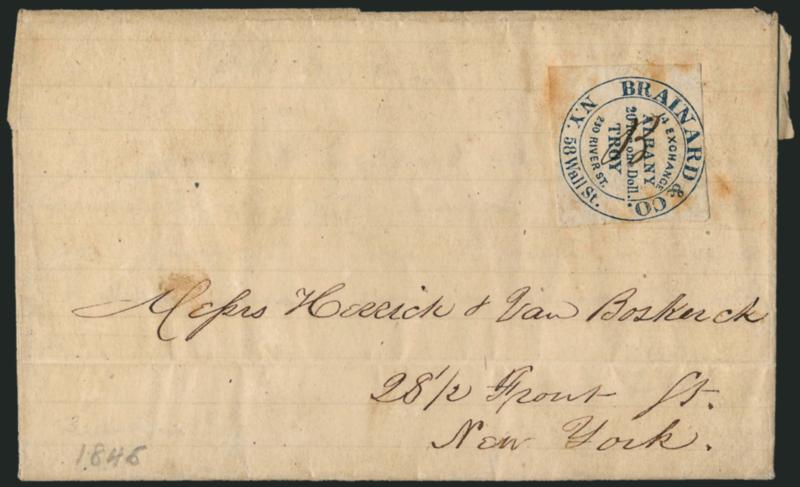 BRAINARD & CO.
N.Y. 58 Wall St.
14 EXCHANGE
ALBANY
20 for one Doll.
TROY
230 RIVER ST.
B
Messrs Herrick & Van Boskerck
28 1/2 Front St.
New York.
1846